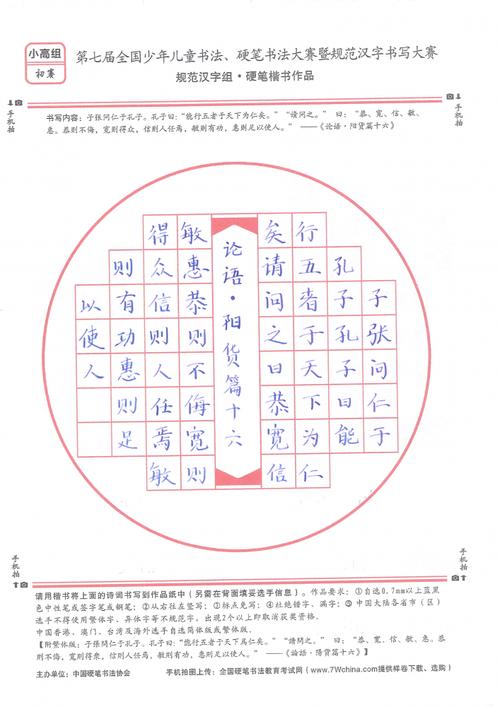 小高组
初赛
第七届全国少年儿童书法、硬笔书法大赛暨规范汉字书写大赛
规范汉字组·硬笔楷书作品
手机拍
手机拍
书写内容：子张问仁于孔子。孔子曰：“能行五者于天下为仁矣。”“请问之。” 曰：“恭、宽、信、敏、
惠。恭则不侮，宽则得众，信则人任焉，敏则有功，惠则足以使人。” ——《论语·阳货篇十六》
子张问仁于
孔子孔子曰能
行五者于天下为仁
矣请问之曰恭宽信
论语·阳货篇十六
敏惠恭则不侮宽则
得众信则人任焉敏
则有功惠则足
以使人
手机拍
手机拍
请用楷书将上面的诗词书写到作品纸中（另需在背面填妥选手信息）。作品要求：①自选0.7mm以上蓝黑
色中性笔或签字笔或钢笔；②从右往左竖写；③标点免写；④杜绝错字、漏字；⑤ 中国大陆各省市（区）
选手不得使用繁体字、异体字等不规范字，出现2个以上即取消获奖资格。
中国香港、澳门、台湾及海外选手自选简体版或繁体版。
【附繁体版：子張問仁于孔子。孔子曰：“能行五者于天下爲仁矣。” “請問之。” 曰：“恭、寬、信、敏、惠。恭
則不侮，寬則得衆，信則人任焉，敏則有功，惠則足以使人。” ——《論語·陽貨篇十六》】
主办单位：中国硬笔书法协会 手机拍图上传：全国硬笔书法教育考试网（www.7Wchina.com提供样卷下载、选购）